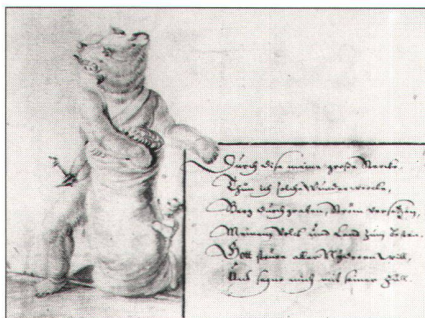 Durch dise meine große Sterck.
Thun ich solche Wunderwerck,
Berg durchgraben, Strüm versetzen,
Meinem Volk und Land zum
Gott steure aller Will,
Und segne mich mit seiner Füll.